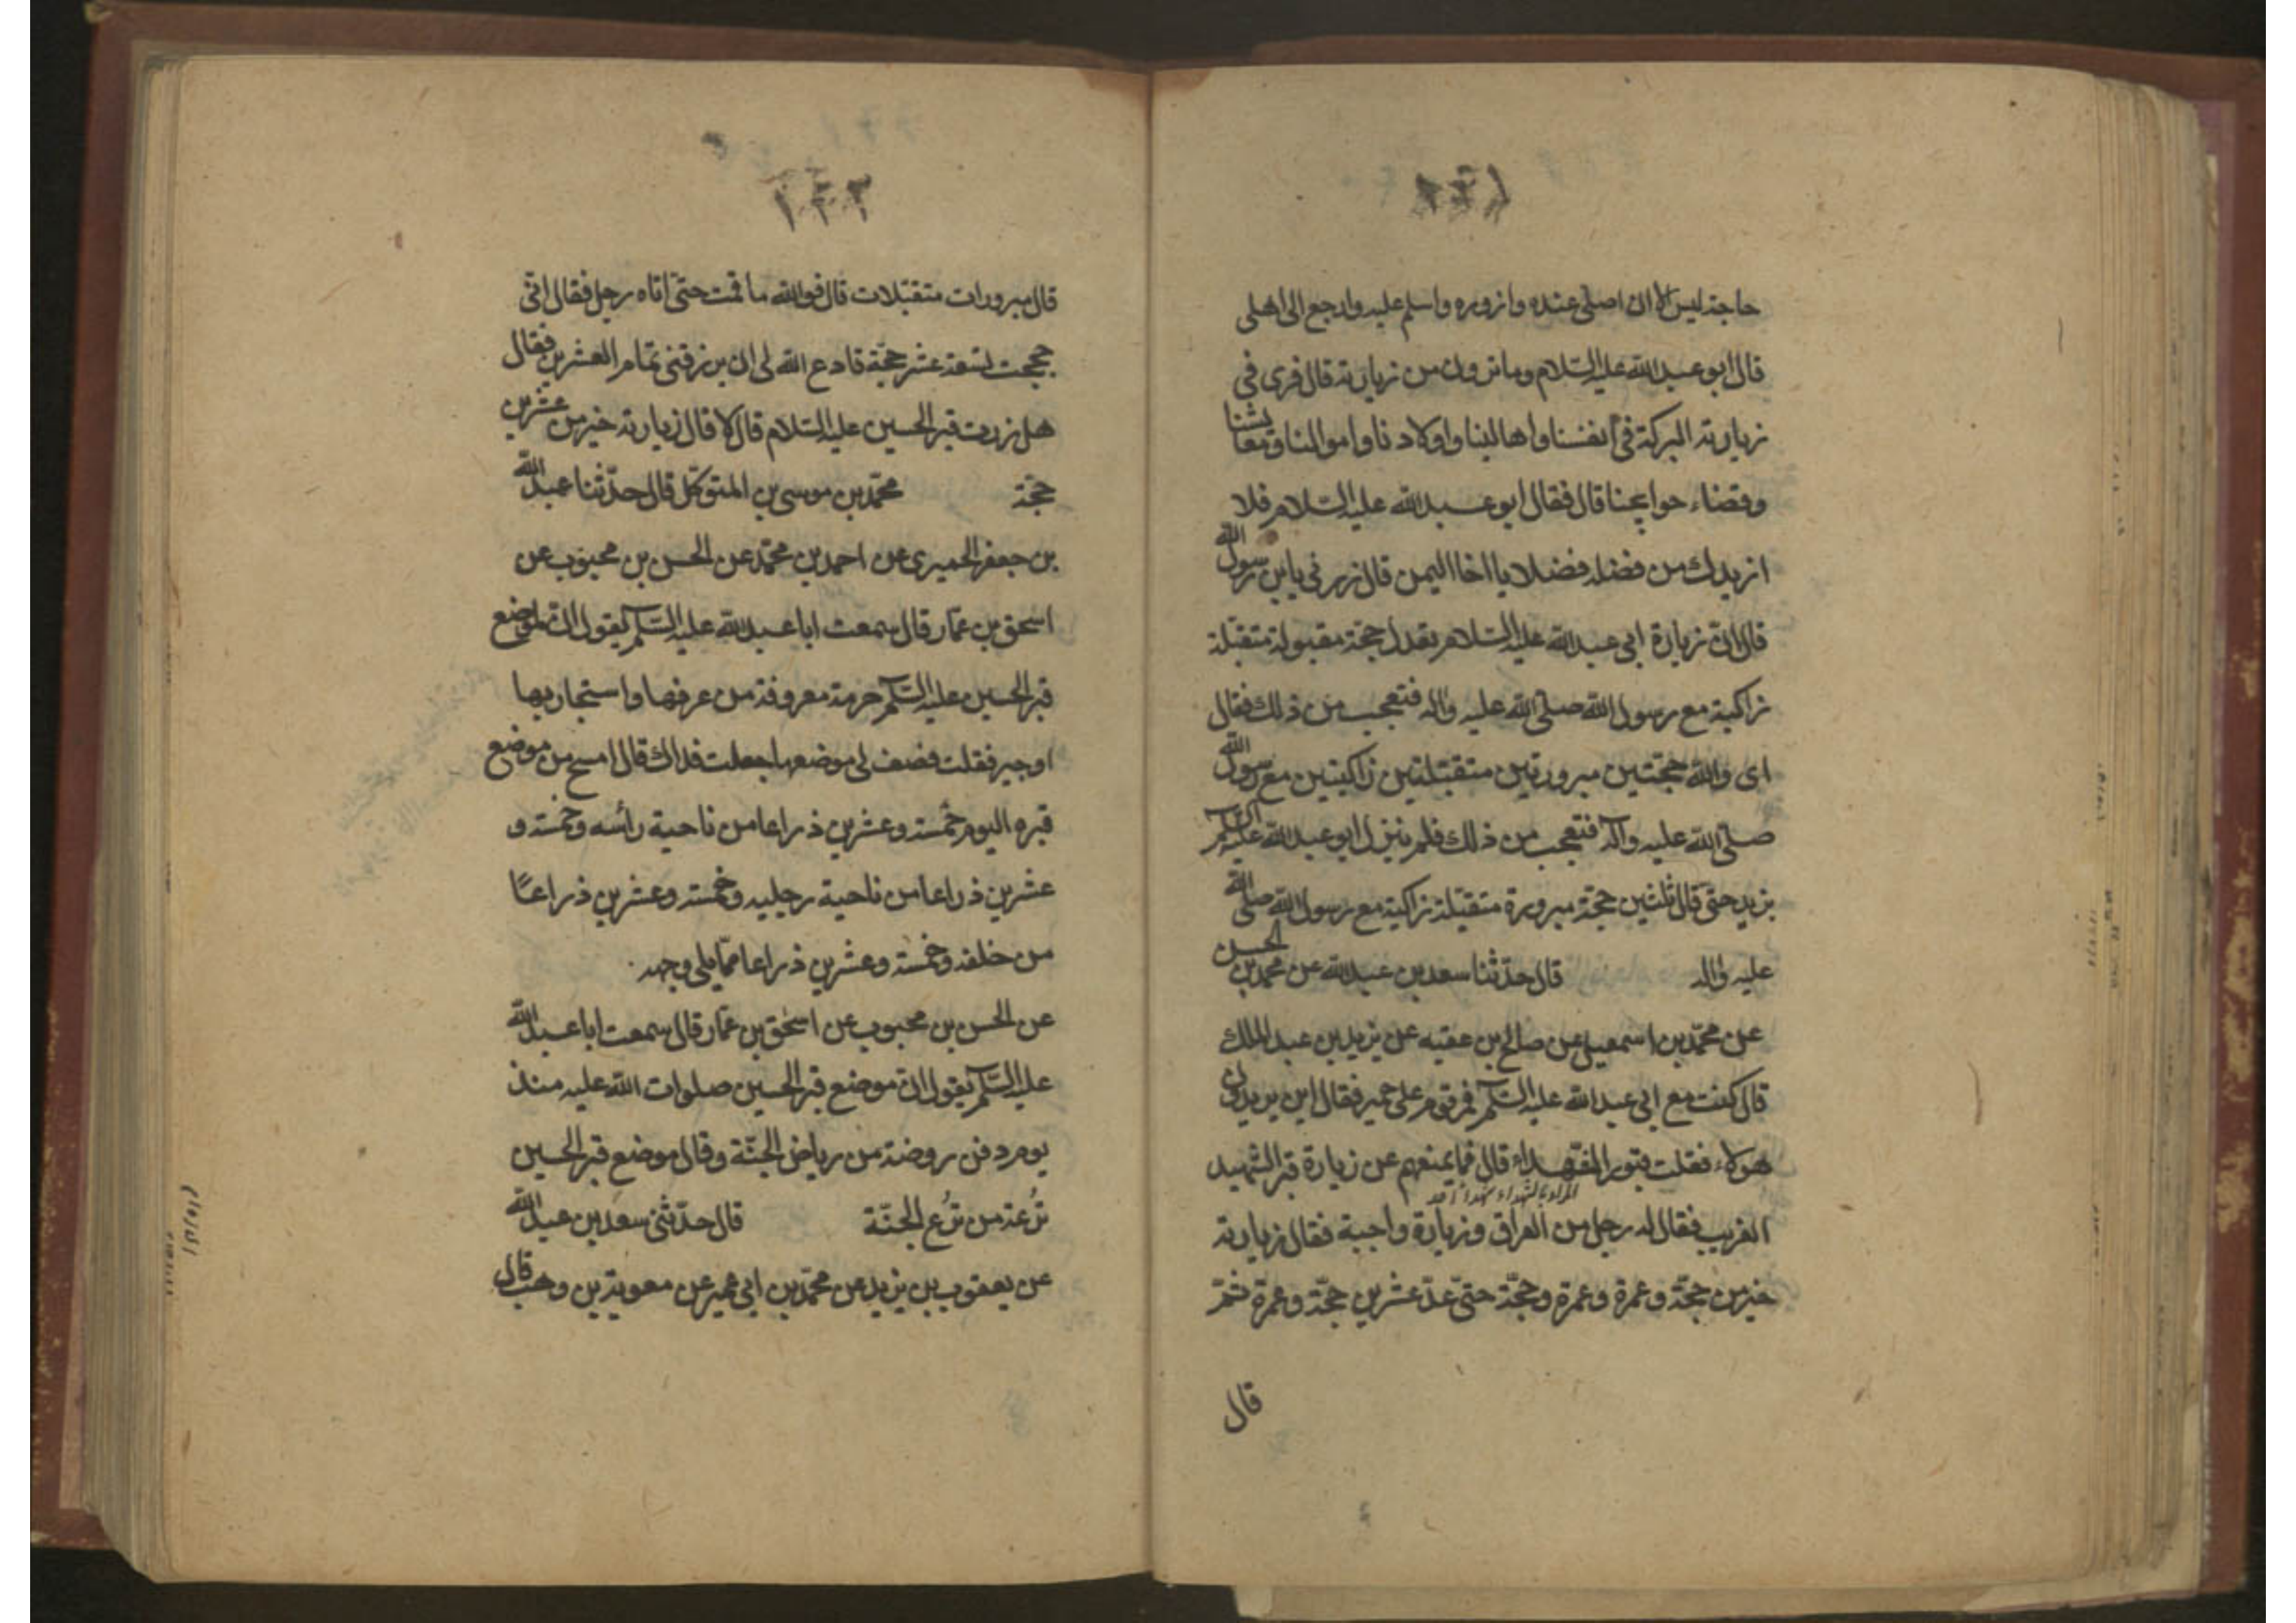 حاجة ليس الا ان اصلى عنده وازوره واسلم عليه وارجع الى اهلى
قال ابو عبدالله عليه السلام وما ترون من زيارته قال نرى فى
زيارته البركة فى انفسنا واهالينا واولادنا واموالنا ومعايشنا
وقضاء حوايجنا قال فقال ابو عبدالله عليه السلام فلا
ازيدك من فضله فضلا يا اخا اليمن قال زدنى يابن رسول الله
قال ان زيارة ابى عبدالله عليه السلام تعدل حجة مقبولة متقبلة
زاكية مع رسول الله صلى الله عليه واله فتعجب من ذلك فقال
اى والله حجتين مبرورتين متقبلتين زاكيتين مع رسول الله
صلى الله عليه وآله فتعجب من ذلك فلم يزل ابو عبدالله عليه السلم
يزيد حتى قال ثلثين حجة مبرورة متقبلة زاكية مع رسول الله صلى الله
عليه واله قال حدثنا سعد بن عبدالله عن محمد بن الحسين
عن محمد بن اسمعيل عن صالح بن عقبه عن يزيد بن عبد الملك
قال كنت مع ابى عبدالله عليه السلم فمر قوم على حمير فقال اين يريدون
هؤلاء فقلت قبور الشهداء قال فما يمنعهم عن زيارة قبر الشهيد
المراد بالشهداء شهداء احد
الغريب فقال له رجل من العراق وزيارة واجبة فقال زيارته
خير من حجة وعمرة وعمرة وحجة حتى عد عشرين حجة وعمرة ثم
قال
١٤٢
قال مبرورات متقبلات قال فوالله ما قمت حتى اتاه رجل فقال انى
حججت تسعة عشر حجة فادع الله لى ان يرزقنى تمام العشرين فقال
هل زرت قبر الحسين عليه السلام قال لا قال زيارته خير من عشرين
حجة محمد بن موسى بن المتوكل قال حدثنا عبد الله
بن جعفر الحميرى عن احمد بن محمد عن الحسن بن محبوب عن
اسحق بن عمار قال سمعت ابا عبدالله عليه السلم يقول ان لموضع
قبر الحسين عليه السلم حرمة معروفة من عرفها واستجار بها
اوجير فقلت فصف لى موضعها جعلت فداك قال امسح من موضع
قبره اليوم خمسة وعشرين ذراعا من ناحية رأسه وخمسة و
عشرين ذراعا من ناحية رجليه وخمسة وعشرين ذراعًا
من خلفه وخمسة وعشرين ذراعا مما يلى وجهه
عن الحسن بن محبوب عن اسحق بن عمار قال سمعت ابا عبد الله
عليه السلم يقول ان موضع قبر الحسين صلوات الله عليه منذ
يوم دفن روضة من رياض الجنة وقال موضع قبر الحسين
تُرعة من تُرَع الجنة قال حدثنى سعد بن عبد الله
عن يعقوب بن يزيد عن محمد بن ابى عمير عن معوية بن وهب قال